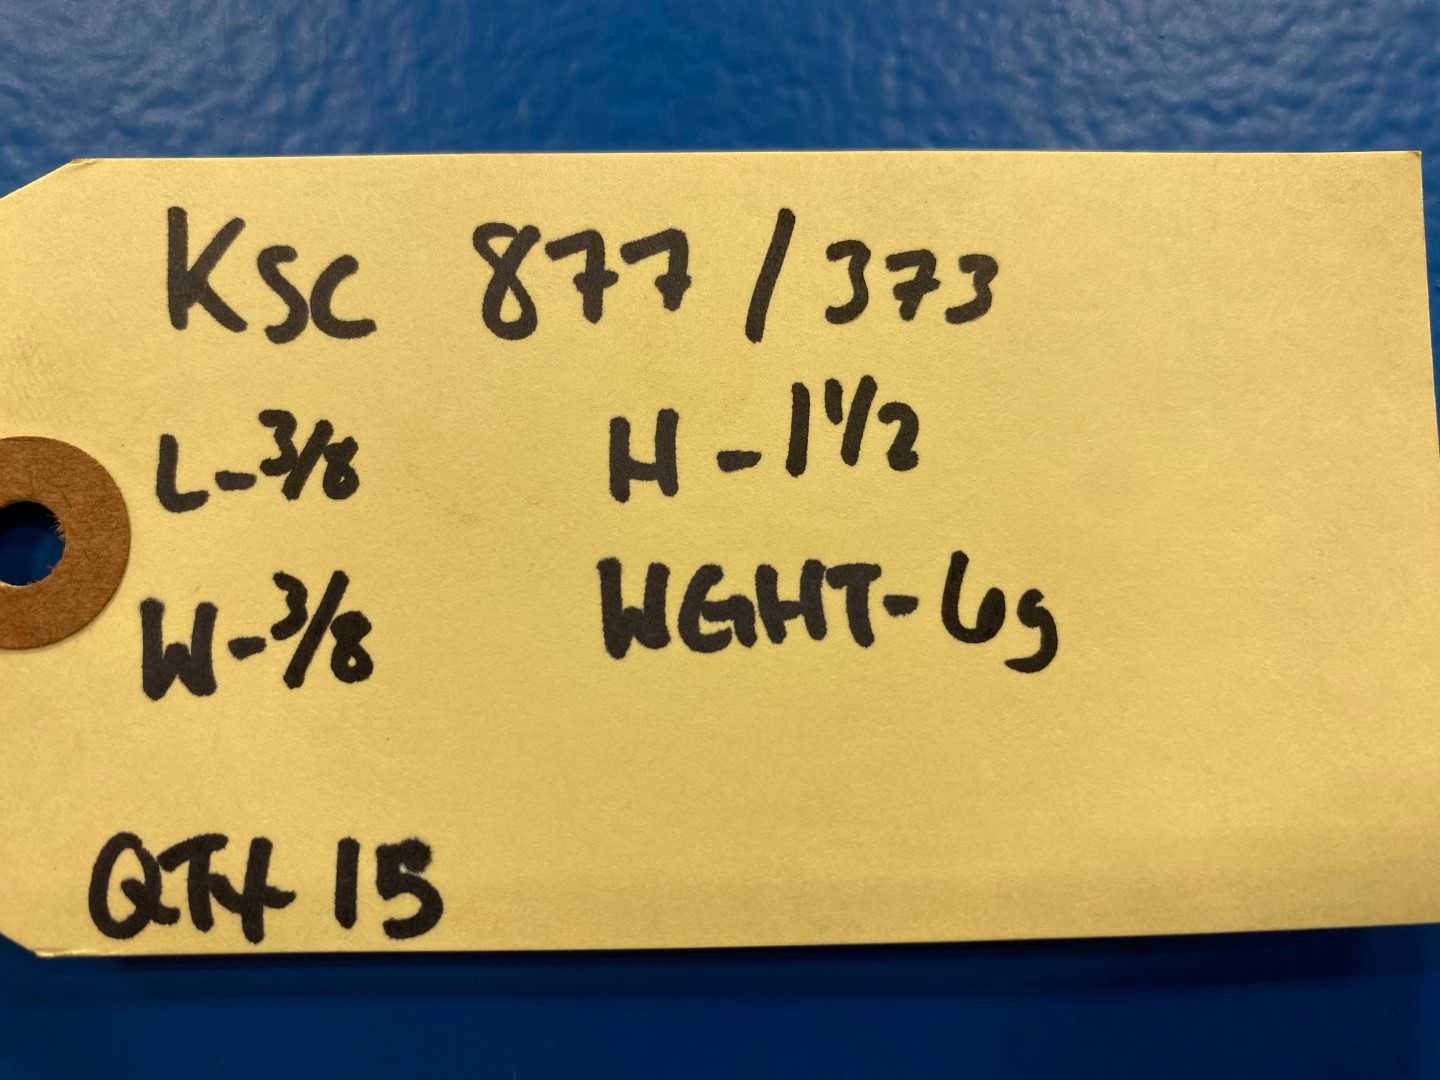 KSC 877 / 373
L-3/8 H-1 1/2
W-3/8 WGHT-6g
QTY 15